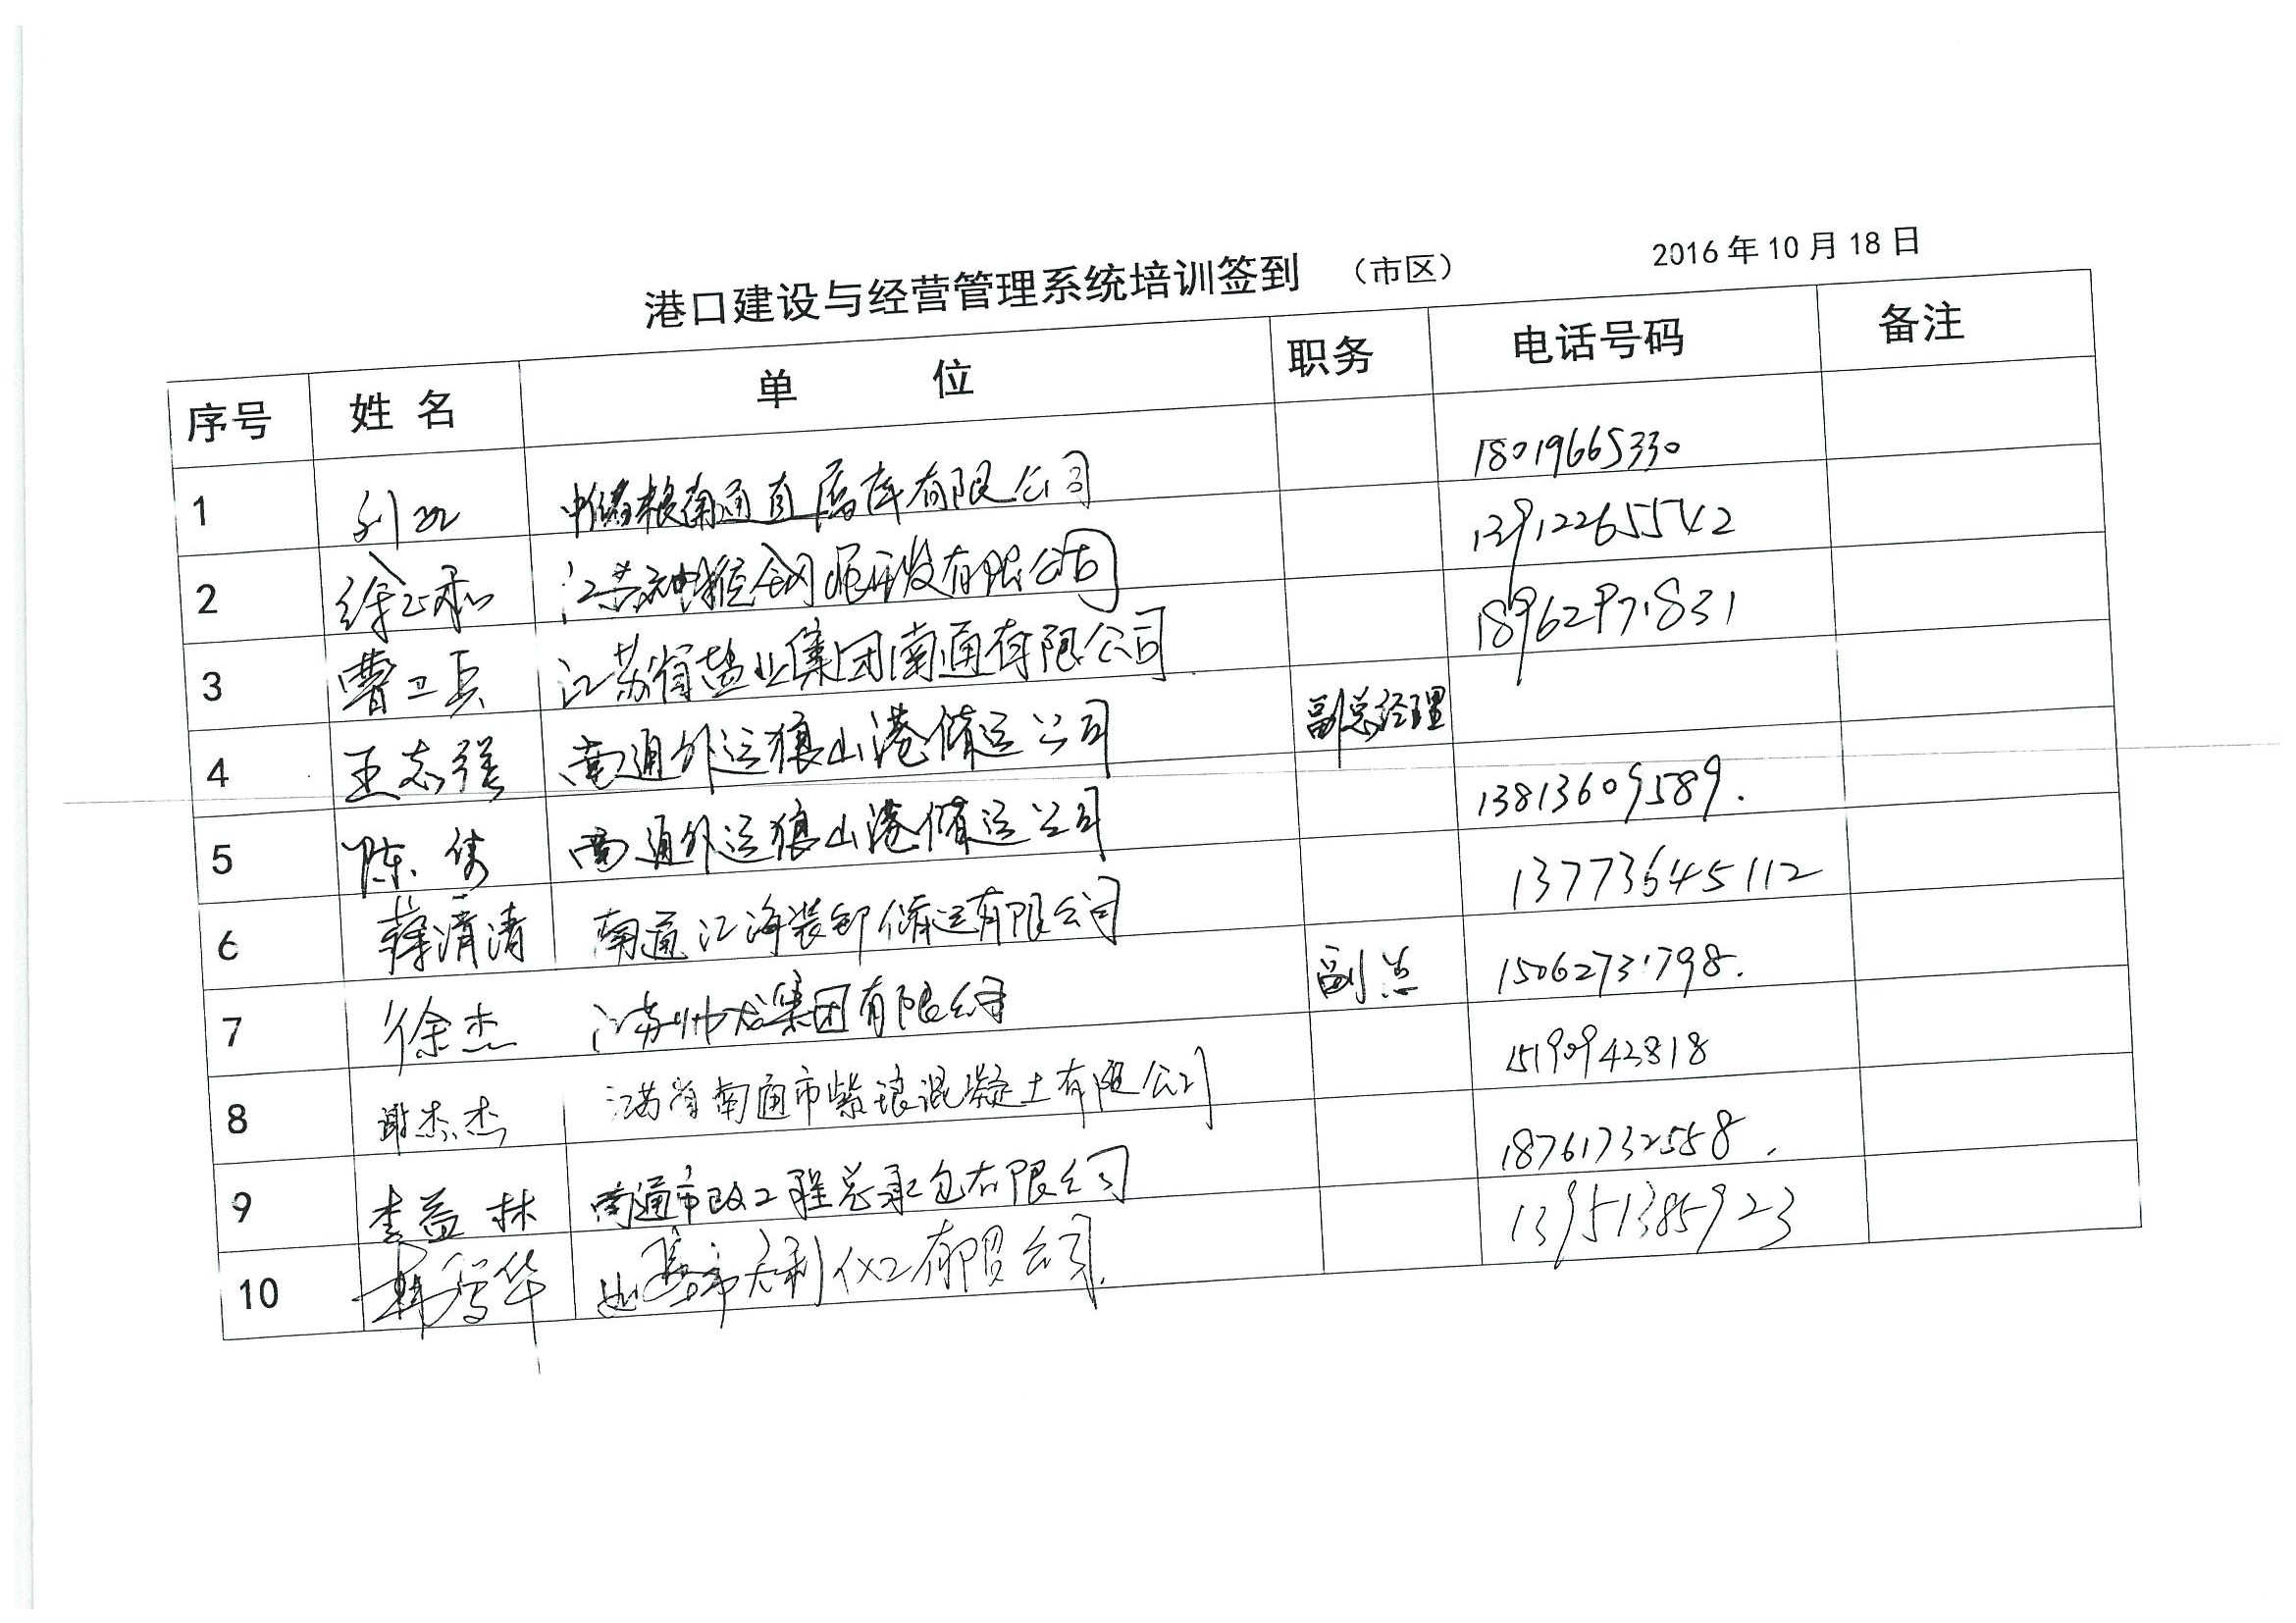 港口建设与经营管理系统培训签到 （市区） 2016年10月18日
序号 姓名 单位 职务 电话号码 备注
1 中储粮南通直属库有限公司 18019665330
2 开发有限公司 13912265542
3 曹卫兵 江苏省盐业集团南通有限公司 18962971831
4 王志强 南通外运狼山港储运公司 副总经理
5 陈 南通外运狼山港储运公司 13813609589.
6 薛清清 南通江海装卸储运有限公司 13773645112
7 徐杰 江苏帅龙集团有限公司 副总 15062731798.
8 谢杰杰 江苏省南通市紫琅混凝土有限公司 15190942818
9 李益林 南通市政工程总承包有限公司 18761732558.
10 有限公司. 13951385923